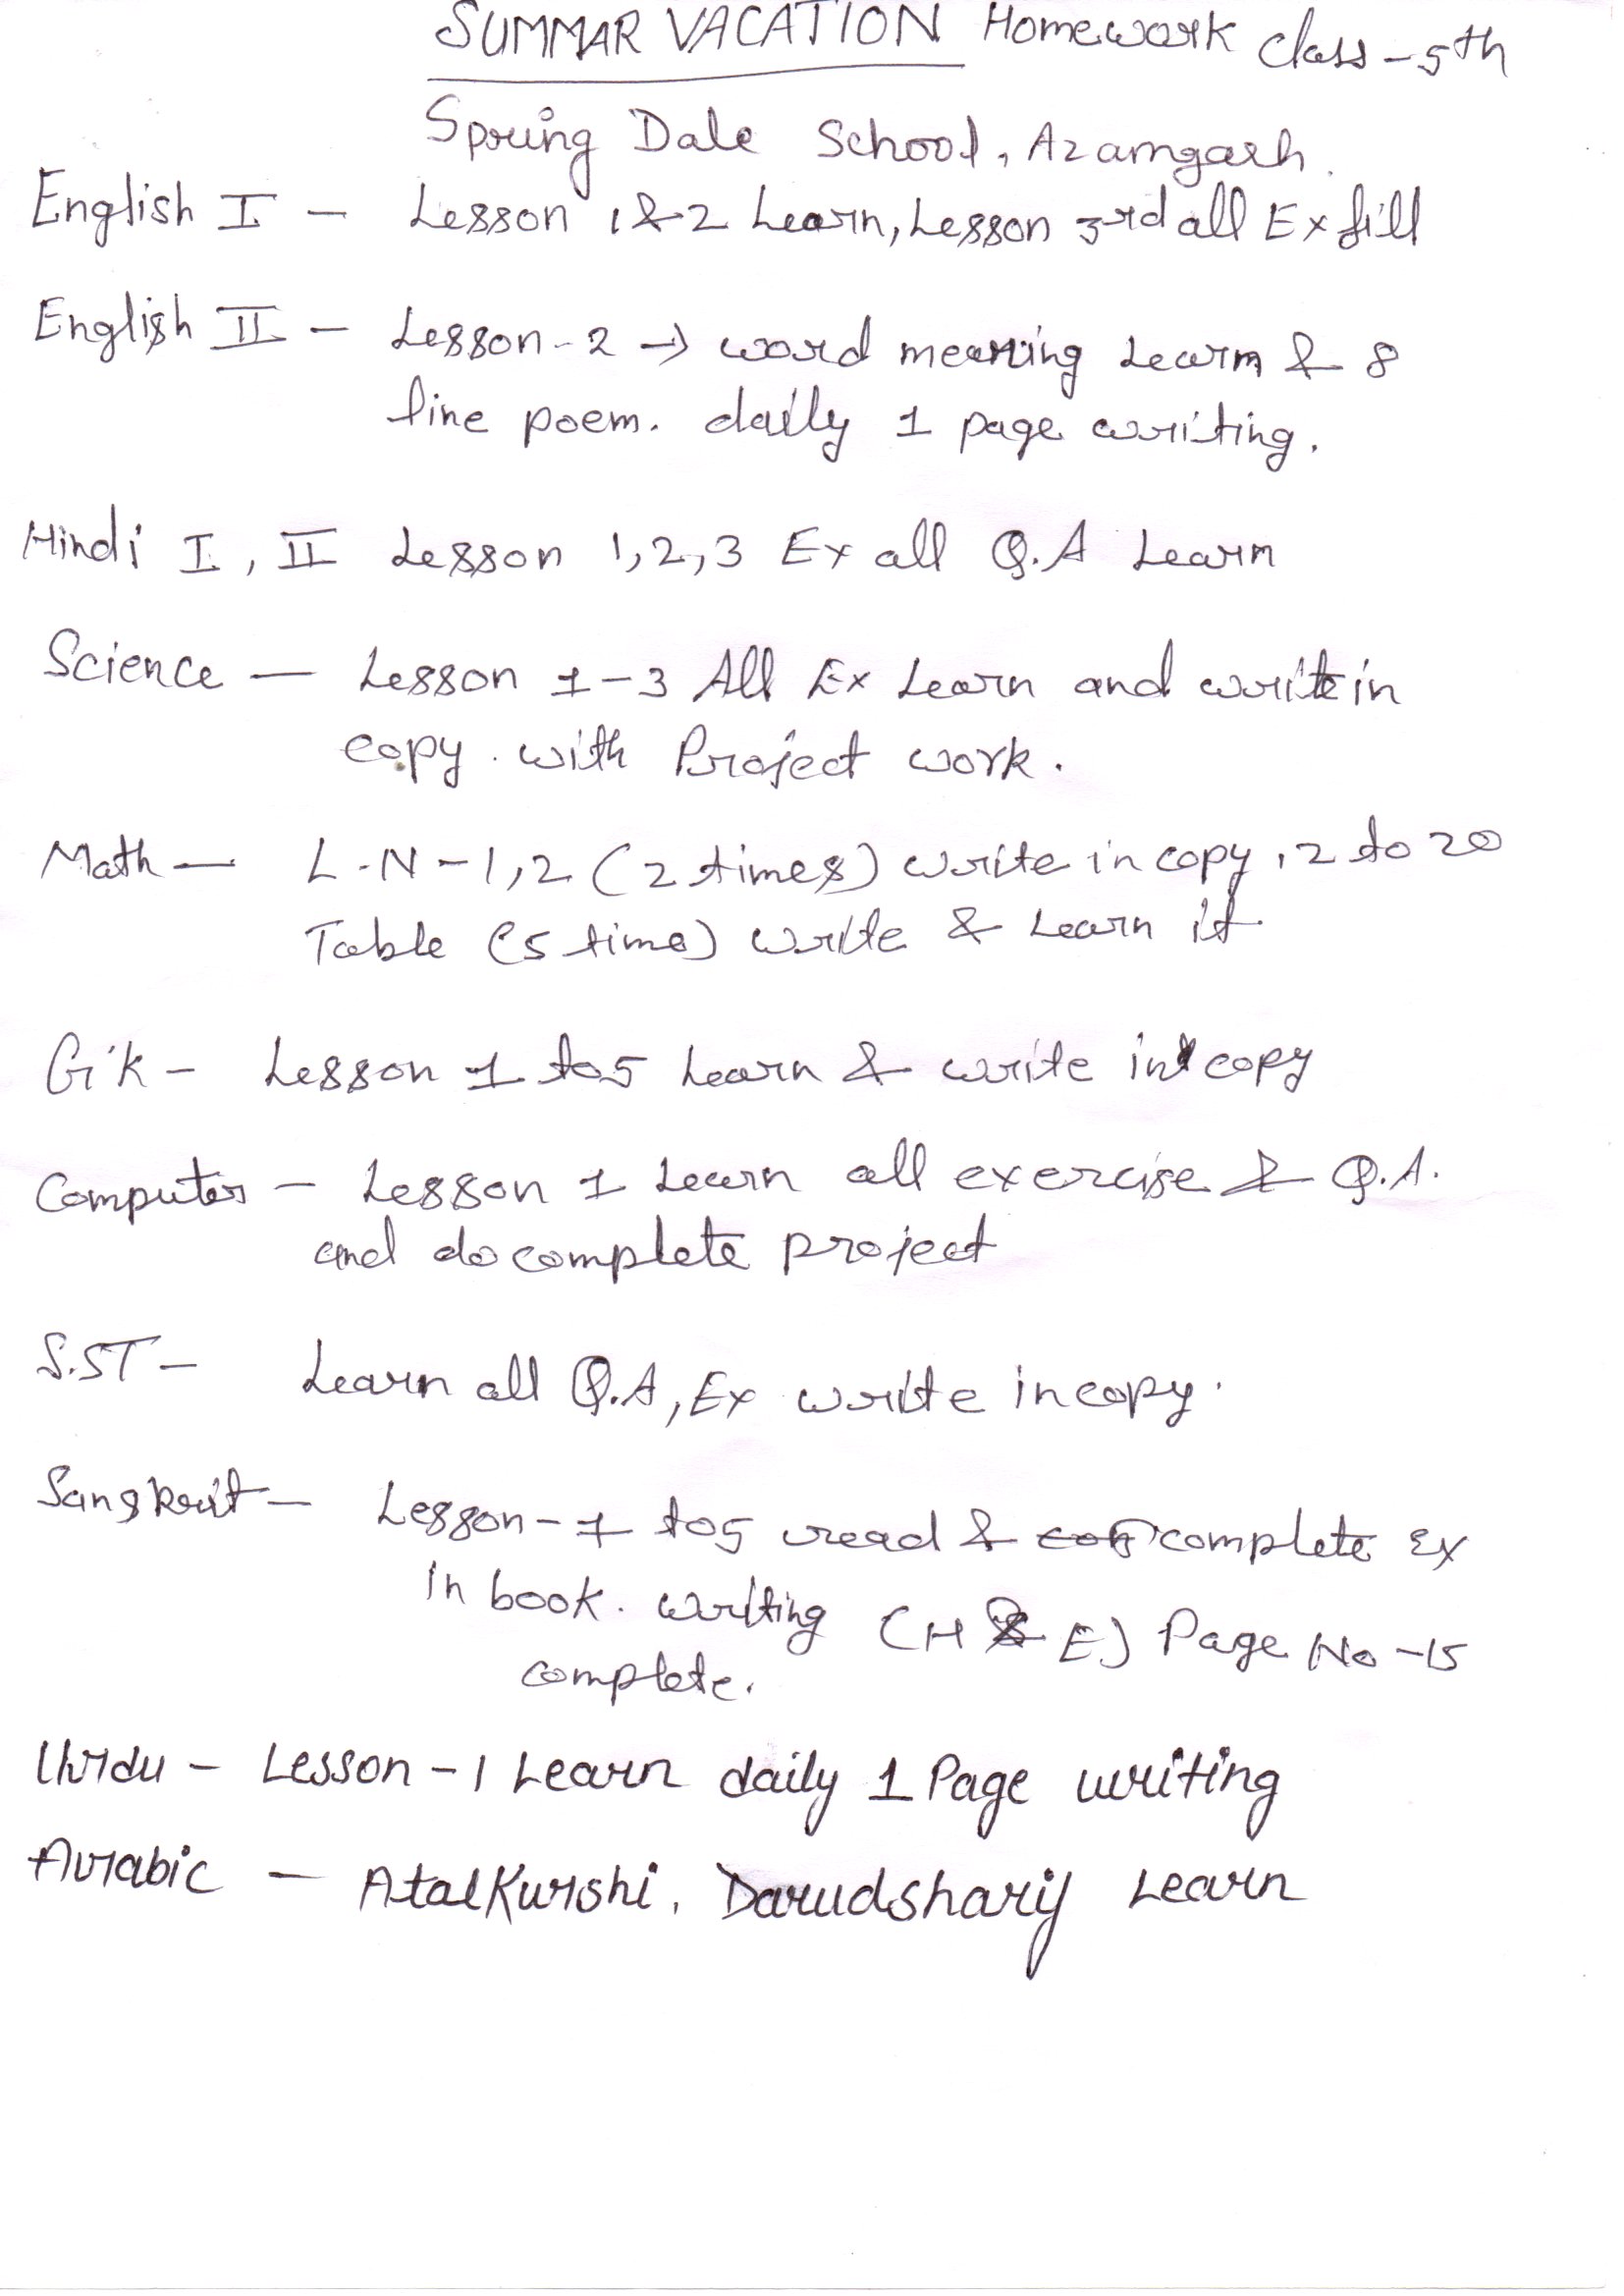 SUMMAR VACATION Homework Class - 5th
Spring Dale School, Azamgarh.
English I - Lesson 1 & 2 Learn, Lesson 3rd all Ex fill
English II - Lesson - 2 → word meaning Learn & 8
line poem. daily 1 page writing.
Hindi I, II Lesson 1,2,3 Ex all Q.A Learn
Science - Lesson 1-3 All Ex Learn and write in
copy. with Project work.
Math - L.N-1,2 (2 times) write in copy, 2 to 20
Table (5 time) write & Learn it
G.K - Lesson 1 to 5 Learn & write in copy
Computer - Lesson 1 Learn all exercise & Q.A.
and do complete project
S.ST - Learn all Q.A, Ex write in copy.
Sangkrit - Lesson - 1 to 5 read & complete Ex
in book. writing (H & E) Page No - 15
complete.
Urdu - Lesson - 1 Learn daily 1 Page writing
Arabic - Atal Kurshi, Darudsharif Learn